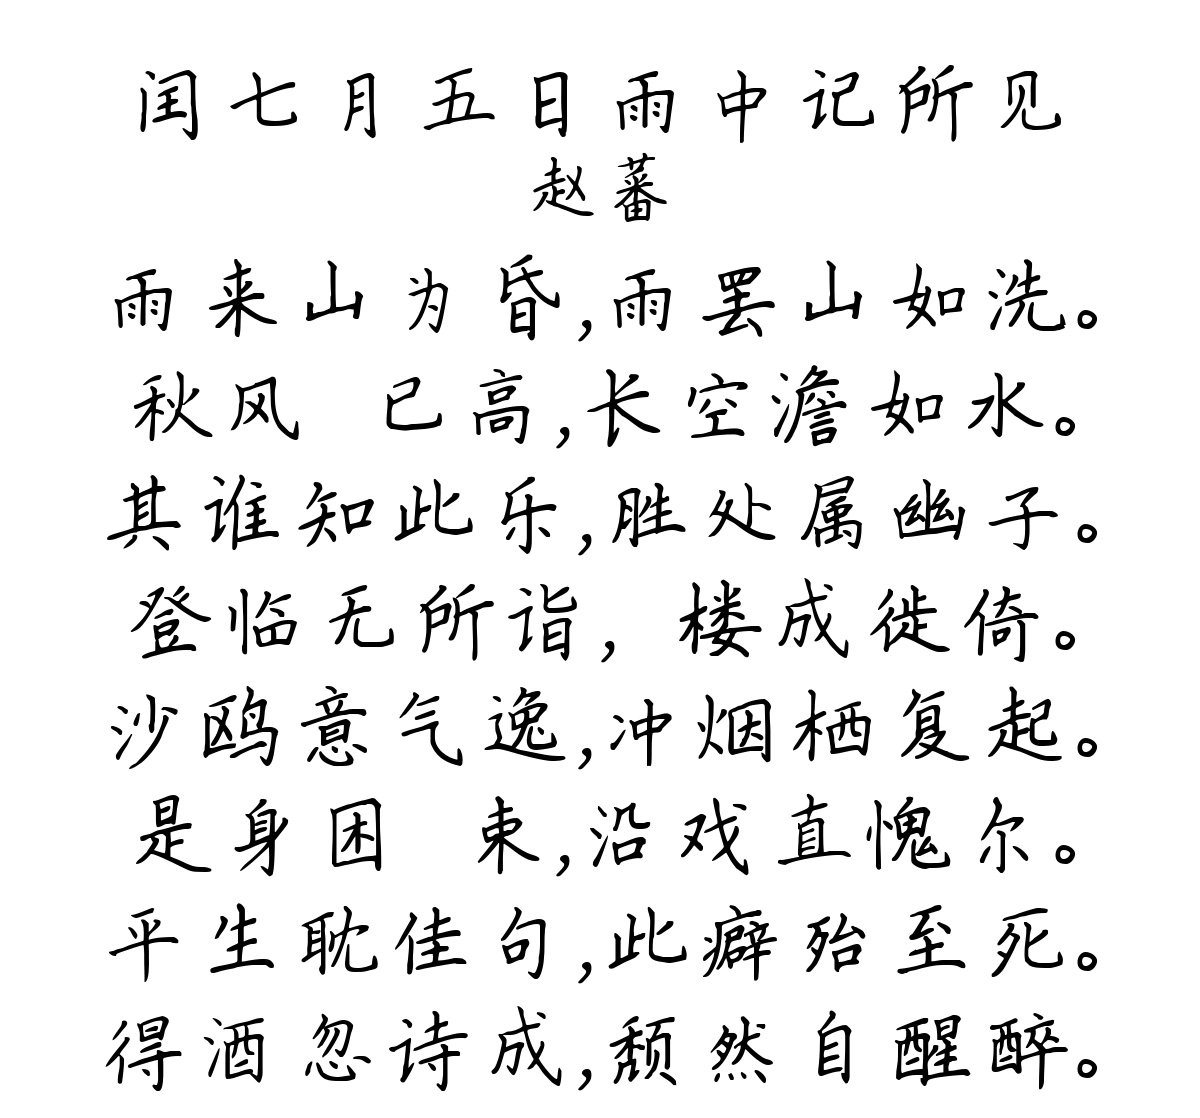 闰七月五日雨中记所见
赵蕃
雨来山为昏,雨罢山如洗。
秋风 已高,长空澹如水。
其谁知此乐,胜处属幽子。
登临无所诣, 楼成徙倚。
沙鸥意气逸,冲烟栖复起。
是身困 束,沿戏直愧尔。
平生耽佳句,此癖殆至死。
得酒忽诗成,颓然自醒醉。